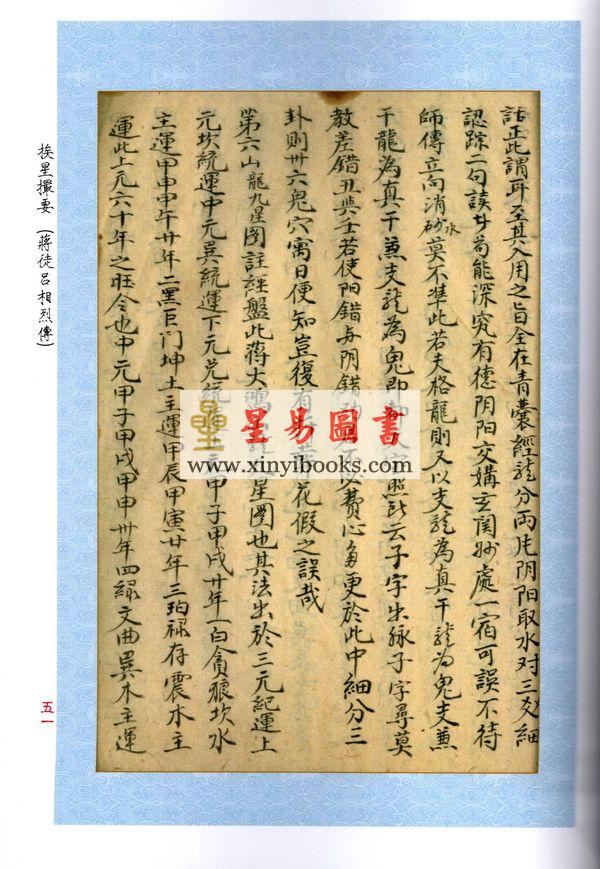 挨星撮要（蔣徒呂相烈傳）
五一
星易圖書
www.xinyibooks.com
話正此謂耳至其入用之旨全在青囊經龍分两片阴阳取水对三义細
認踪二句誤人苟能深究有德阴阳交媾玄関妙處一宿可誤不待
師傳立向消砂水莫不準此若夫格龍則又以支龍為真干龍为鬼支兼
干龍為真干兼支龍為鬼即 照訣云子字出脉子字尋莫
教差錯丑與壬若使阳錯与阴錯 不必費心多更於此中細分三
卦則卅六鬼穴寓目便知豈復有 花假之誤哉
第六山龍九星图註經盤此蔣大鴻 星圖也其法出於三元紀運上
元坎統運中元巽統運下元兑統 甲子甲戌廿年一白貪狼坎水
主運甲申甲午廿年二黑巨门坤土主運甲辰甲寅廿年三珀禄存震木主
運此上元六十年之旺令也中元甲子甲戌甲申卅年四緑文曲巽木主運